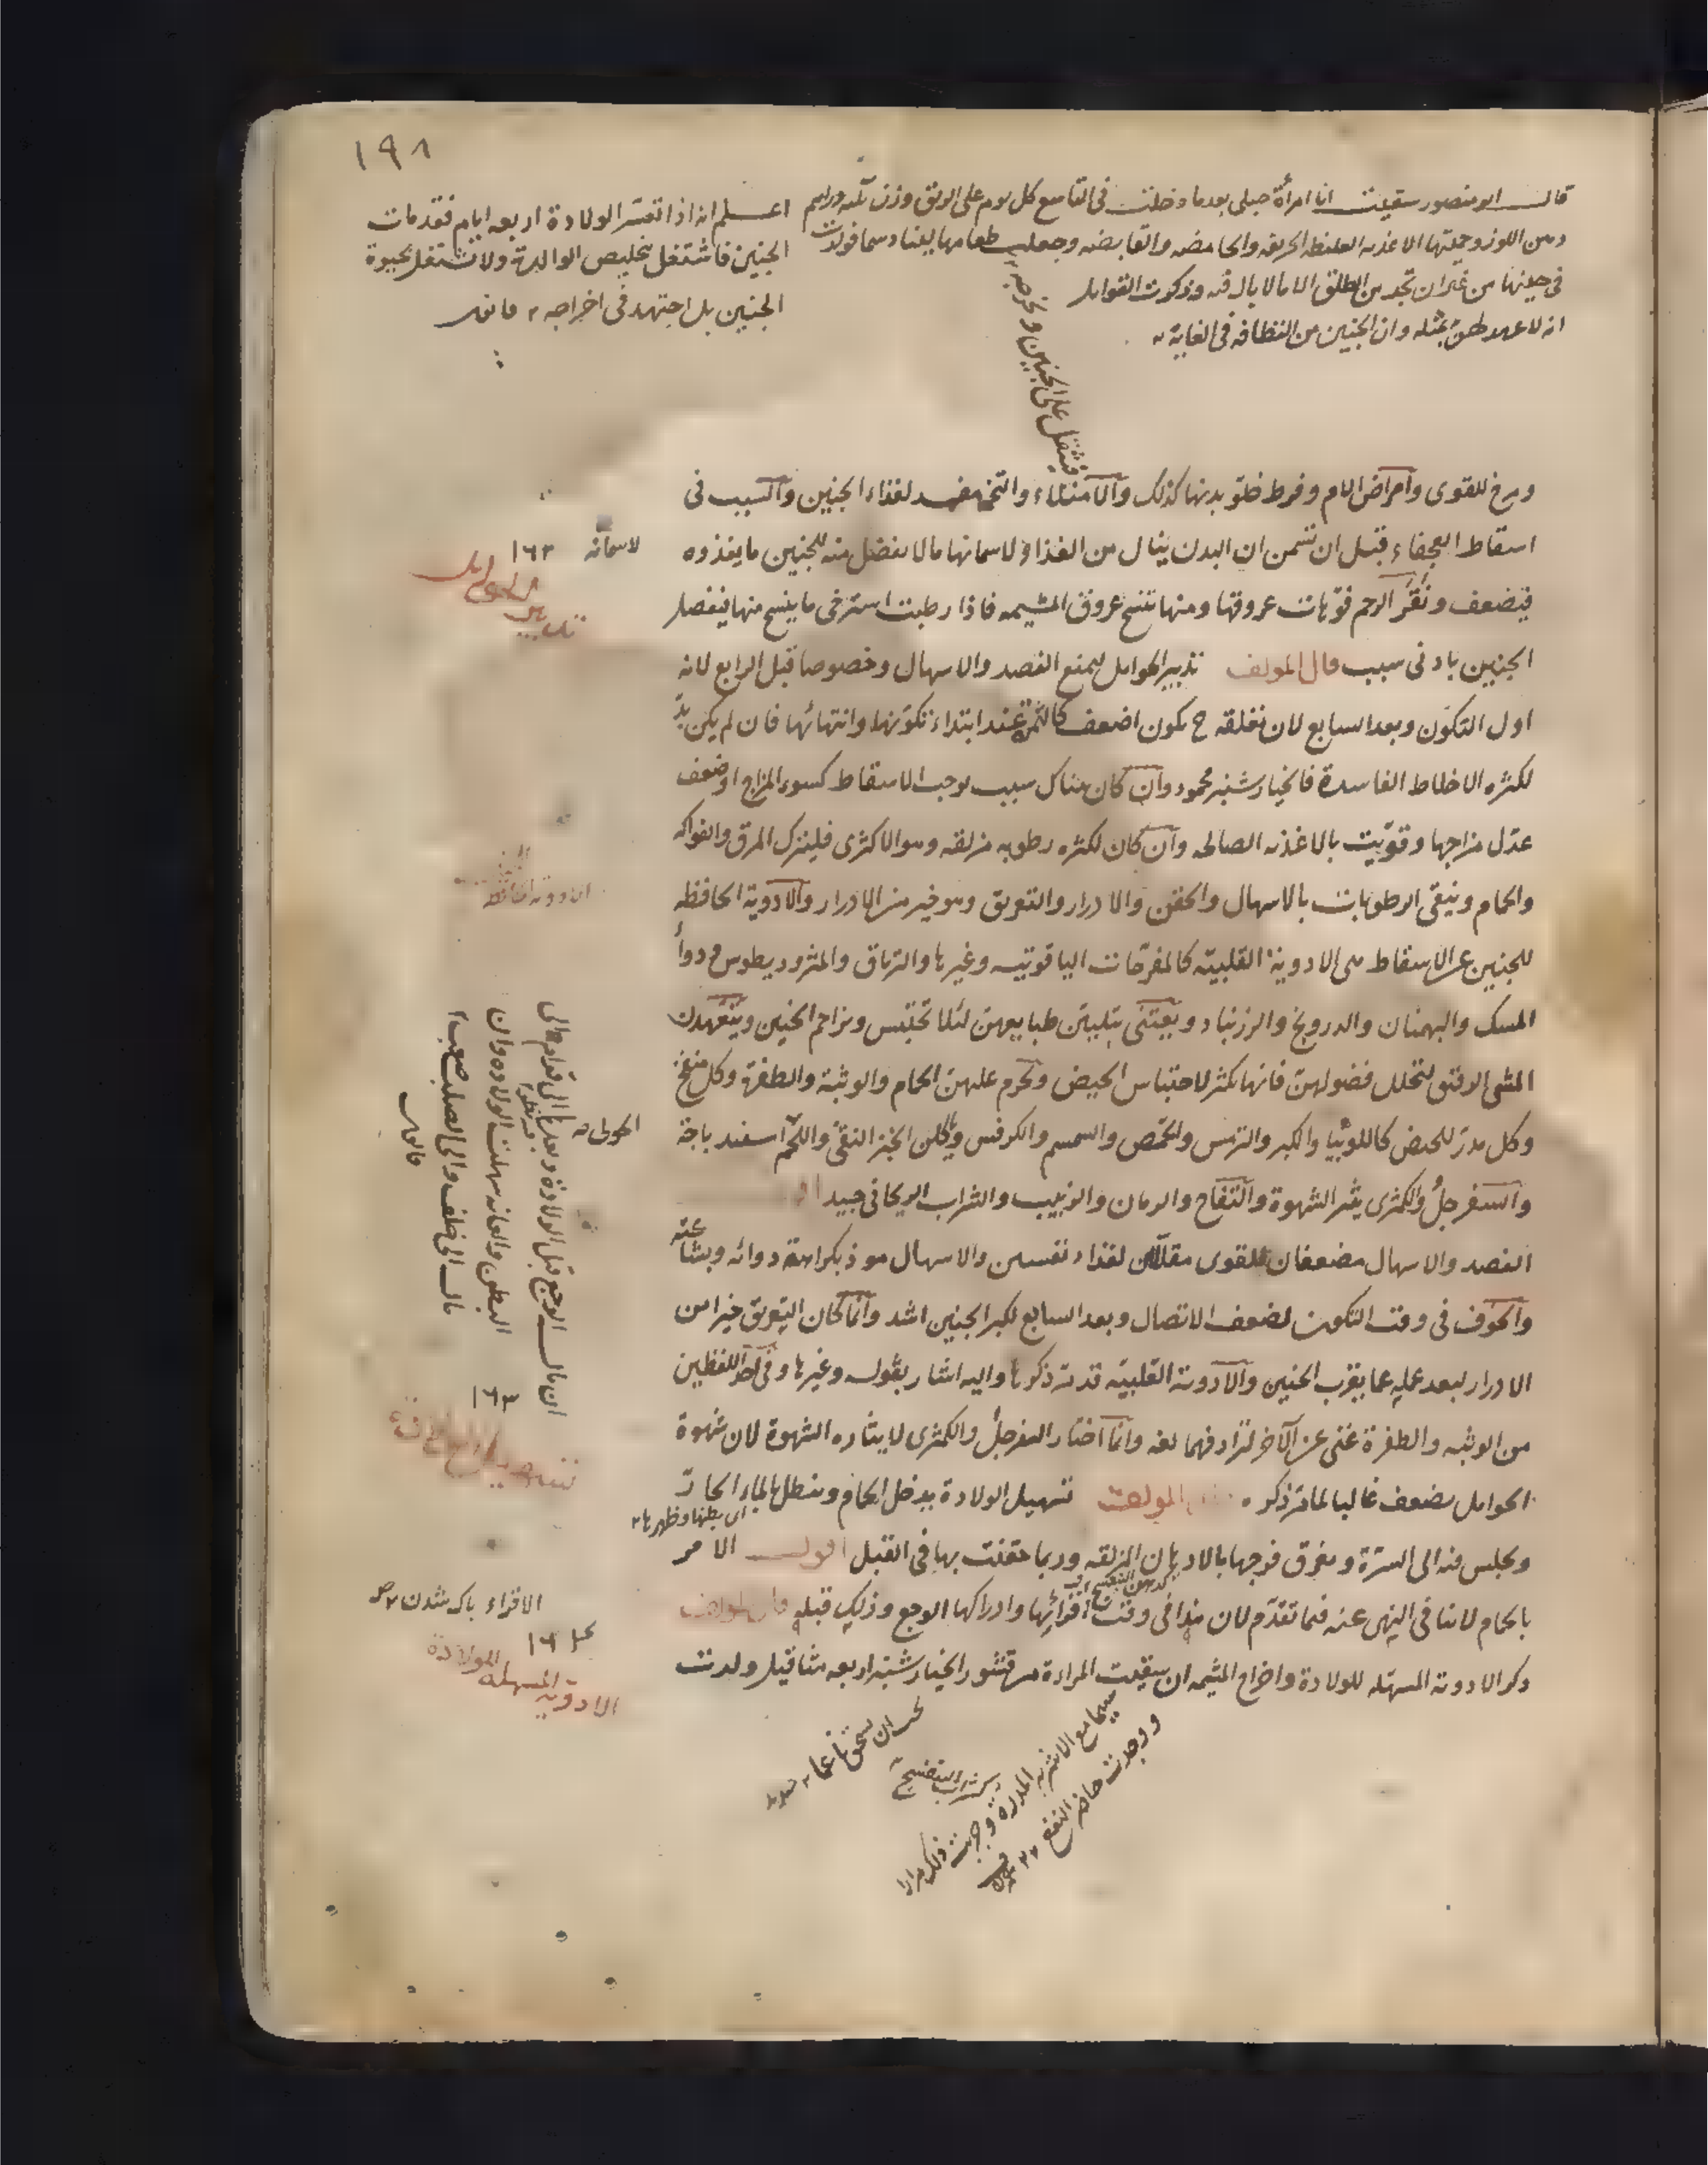 ١٩٨
قال ابو منصور سقيت انا امرأة حبلى بعدما دخلت فى التاسع كل يوم على الريق وزن ثلثه دراهم
دهن اللوز وحميتها الاغذيه الغليظه الحريفه والحامضه والقابضه وجعلت طعامها لينا دسما فولدت
فى حينها من غير ان تجد من الطلق الا ما لا بال فيه وذكرت القوابل
انه لا عهد لهن بمثله وان الجنين من النظافه فى الغاية
اعلم انه اذا تعسر الولادة اربعه ايام فقد مات
الجنين فاشتغل بتخليص الوالدة ولا تشتغل بحيوة
الجنين بل اجتهد فى اخراجه
فتثقل على الجنين وتخرجه
ومرخ للقوى وامراض الام وفرط خلو بدنها كذلك والامتلاء والتخم مفسد لغذاء الجنين والسبب فى
اسقاط العجفاء قبل ان تسمن ان البدن ينال من الغذاء لاسمانها ما لا يفضل منه للجنين ما يغذوه
فيضعف ونقر الرحم فوهات عروقها ومنها تنتسج عروق المشيمه فاذا رطبت استرخى ما ينسج منها فينفصل
الجنين بادنى سبب قال المولف تدبير الحوامل يمنع الفصد والاسهال وخصوصا قبل الرابع لانه
اول التكون وبعد السابع لان تعلقه ح يكون اضعف كالثمرة عند ابتداء تكونها وانتهائها فان لم يكن بد
لكثره الاخلاط الفاسدة فالخيارشنبر محمود وان كان هناك سبب يوجب الاسقاط كسوء المزاج او ضعف
عدل مزاجها وقويت بالاغذيه الصالحه وان كان لكثره رطوبه مزلقه وهو الاكثرى فليترك المرق والفواكه
والحمام وينقى الرطوبات بالاسهال والحقن والادرار والتعريق وهو خير من الادرار والادوية الحافظه
للجنين عن الاسقاط هى الادوية القلبيه كالمفرحات الياقوتيه وغيرها والترياق والمثروديطوس ودواء
المسك والبهمنان والدرونج والزرنباد ويعتنى بتليين طبايعهن لئلا تحتبس وتزاحم الجنين ويتعهدن
المشى الرفق لتحلل فضولهن فانها تكثر لاحتباس الحيض وتحرم عليهن الحمام والوثبة والطفرة وكل منفخ
وكل مدر للحيض كاللوبيا والكبر والترمس والحمص والسمسم والكرفس وياكلن الخبز النقى واللحم اسفيدباجة
والسفرجل والكمثرى يثير الشهوة والتفاح والرمان والزبيب والشراب الريحانى جيد
الفصد والاسهال مضعفان للقوى مقللان لغذاء نفسين والاسهال موذ بكراهة دوائه وبشاعته
والخوف فى وقت التكون لضعف الاتصال وبعد السابع لكبر الجنين اشد وانما كان التعريق خيرا من
الادرار لبعد عمله عما يقرب الجنين والادويه القلبيه قد مر ذكرها واليه اشار بقوله وغيرها وفى احد اللفظين
من الوثبه والطفرة غنى عن الآخر لترادفهما لغه وانما اختار السفرجل والكمثرى لايثاره الشهوة لان شهوة
الحوامل يضعف غالبا لما مر ذكره المولف تسهيل الولادة يدخل الحمام وينطل بالماء الحار
اى بطنها وظهرها
ويجلس فيه الى السرة ويمرق فرجها بالادهان المزلقه وربما حقنت بها فى القبل اقول الامر
بالحمام لا ينافى النهى عنه فيما تقدم لان هذا فى وقت اقرائها وادراكها الوجع وذلك قبله قال المولف
ذكر الادويه المسهله للولادة واخراج المشيمه ان سقيت المراءة من قشور الخيارشنبر اربعه مثاقيل ولدت
لاسمانه
١٦٣
تدبير الحوامل
الادويه الحافظه
الحولى
ان مال الوجع قبل الولادة وبعدها الى قدام والى
البطن والعانه سهلت الولاده وان
مال الى خلف والى الصلب صعب
قانون
١٦٣
الاقراء پاک شدن
١٦٤
الادويه المسهله للولادة
سيما مع الاشربه المدرة وجربت ذلك مرارا
ووجدت حاضر النفع